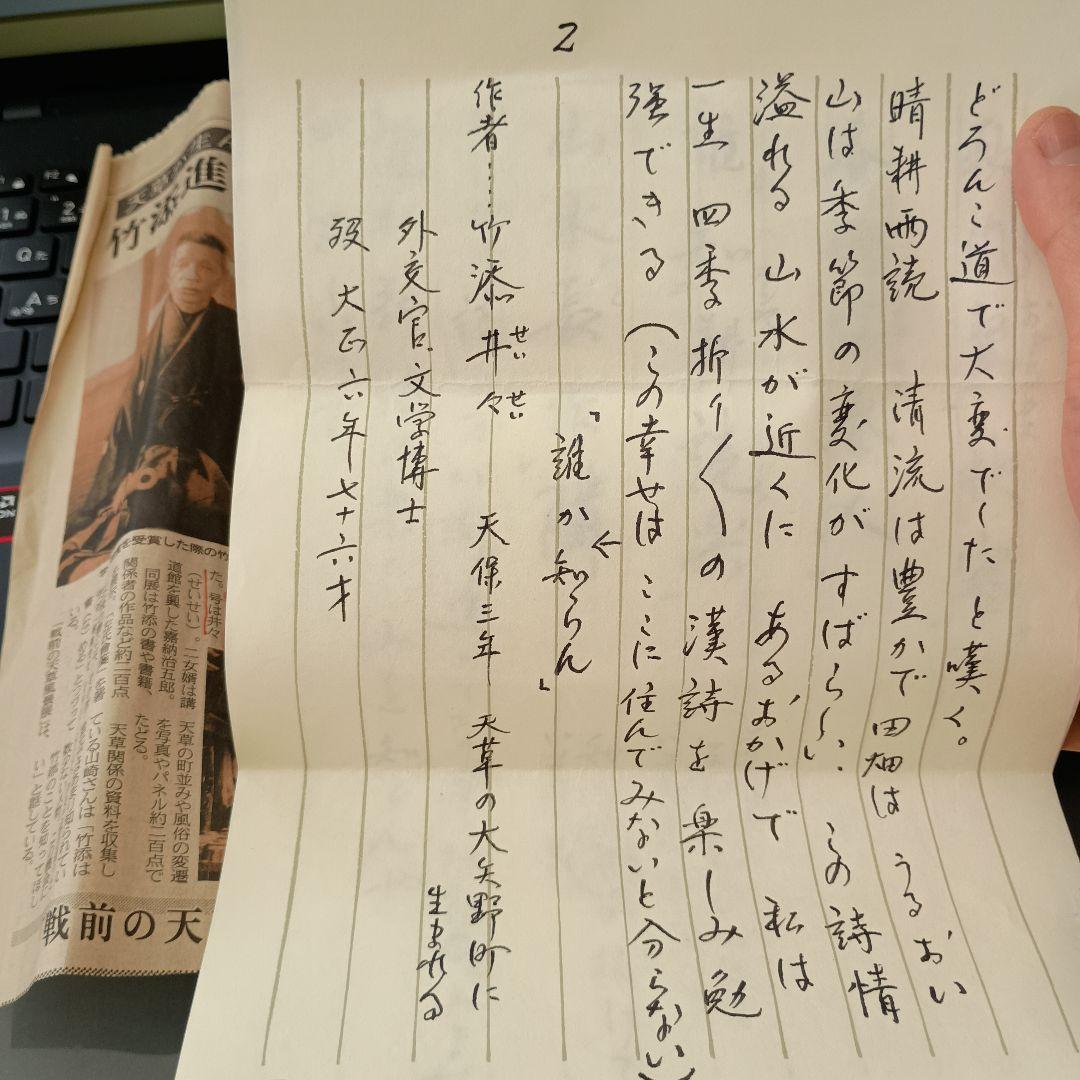 2
どろんこ道で大変でしたと嘆く。
晴耕雨読 清流は豊かで田畑は うるおい
山は季節の変化がすばらしい。この詩情
溢れる山水が近くに あるおかげで 私は
一生 四季折々の漢詩を楽しみ勉
強できる(この幸せは ここに住んでみないと分らない)
←
「誰か知らん」
作者…竹添井々 天保三年 天草の大矢野町に
せい せい
生まれる
外交官、文学博士
歿 大正六年 七十六才
竹添進
を受賞した際の竹
た。号は井々
(せいせい)。二女婿は講
道館を興した嘉納治五郎。
同展は竹添の書や書籍、
関係者の作品など約二百点
天草の町並みや風俗の変遷
を写真やパネル約二百点で
たどる。
天草関係の資料を収集し
ている山崎さんは「竹添は
い」と話している。
戦前の天
2
Q
A